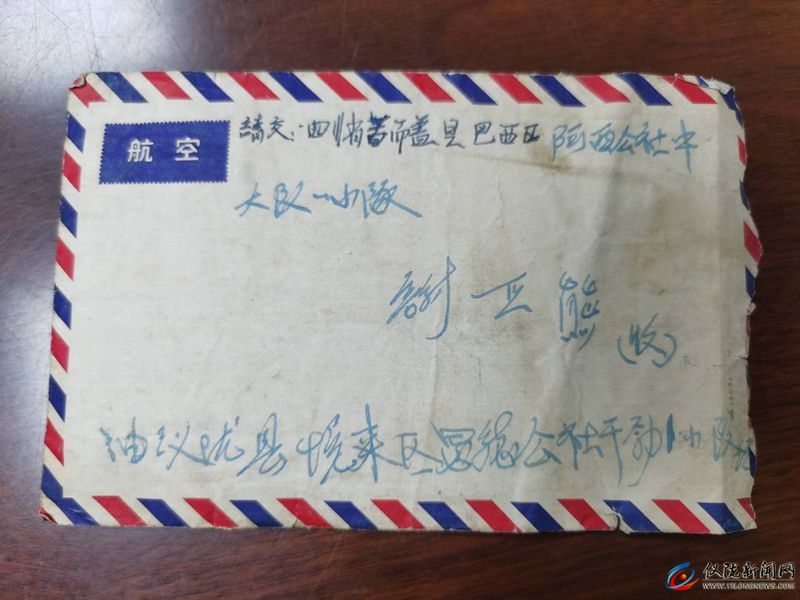 航空
請交:四川省若而盖县巴西区阿西公社中
大队一小隊
謝正熊
(收)
由仪陇县悦来区 公社干 小队
仪陇新闻网
WWW.YILONGNEWS.COM